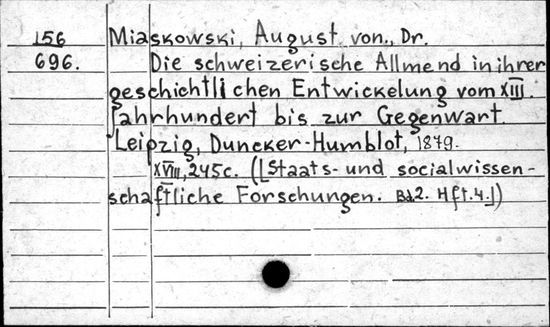 156 Miaskowski, August von., Dr.
696. Die schweizerische Allmend in ihrer
geschichtlichen Entwickelung vom XIII.
Jahrhundert bis zur Gegenwart.
Leipzig, Duncker-Humblot, 1879.
XVIII, 245c. ([Staats- und socialwissen-
schaftliche Forschungen. Bd2. Hft.4.])